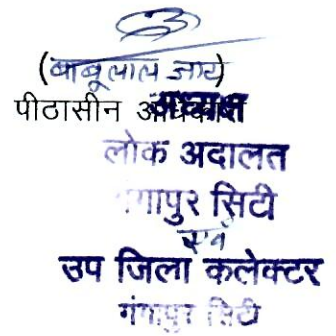 (बाबूलाल जाट)
पीठासीन अधिकारी
अध्यक्ष
लोक अदालत
गंगापुर सिटी
एवं
उप जिला कलेक्टर
गंगापुर सिटी